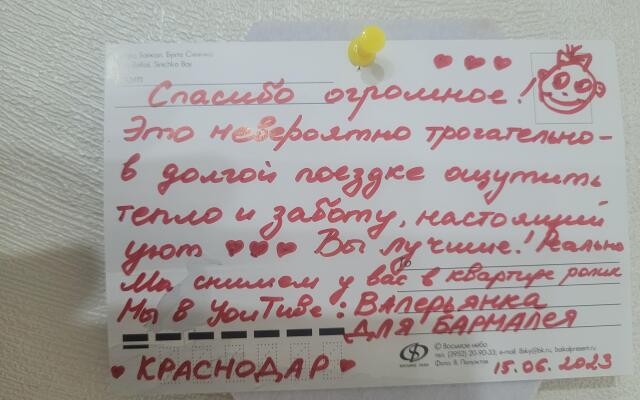 Байкал. Бухта Сенная
Baikal, Senchka Bay
Спасибо огромное!
Это невероятно трогательно-
в долгой поездке ощутить
тепло и заботу, настоящий
уют ♥♥♥ Вы лучшие! Реально
Мы снимем у вас в квартире ролик
Мы в YouTube: Валерьянка
для Бармалея
♥ КРАСНОДАР ♥
© Восьмое небо
тел. (3952) 20-90-33, e-mail: 8sky@bk.ru, baikalpresent.ru
Фото: В.
15.06.2023